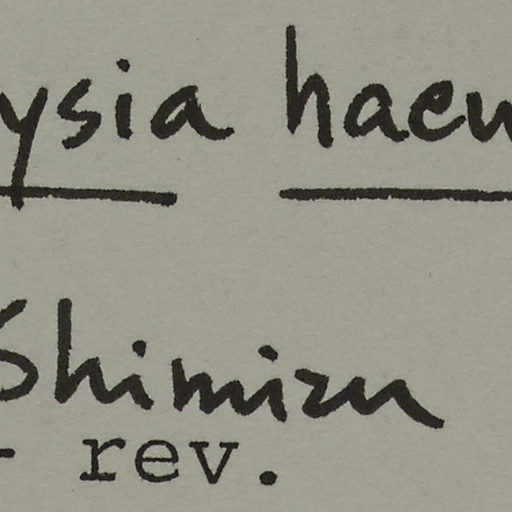 ysia haeu
Shimizu
- rev.